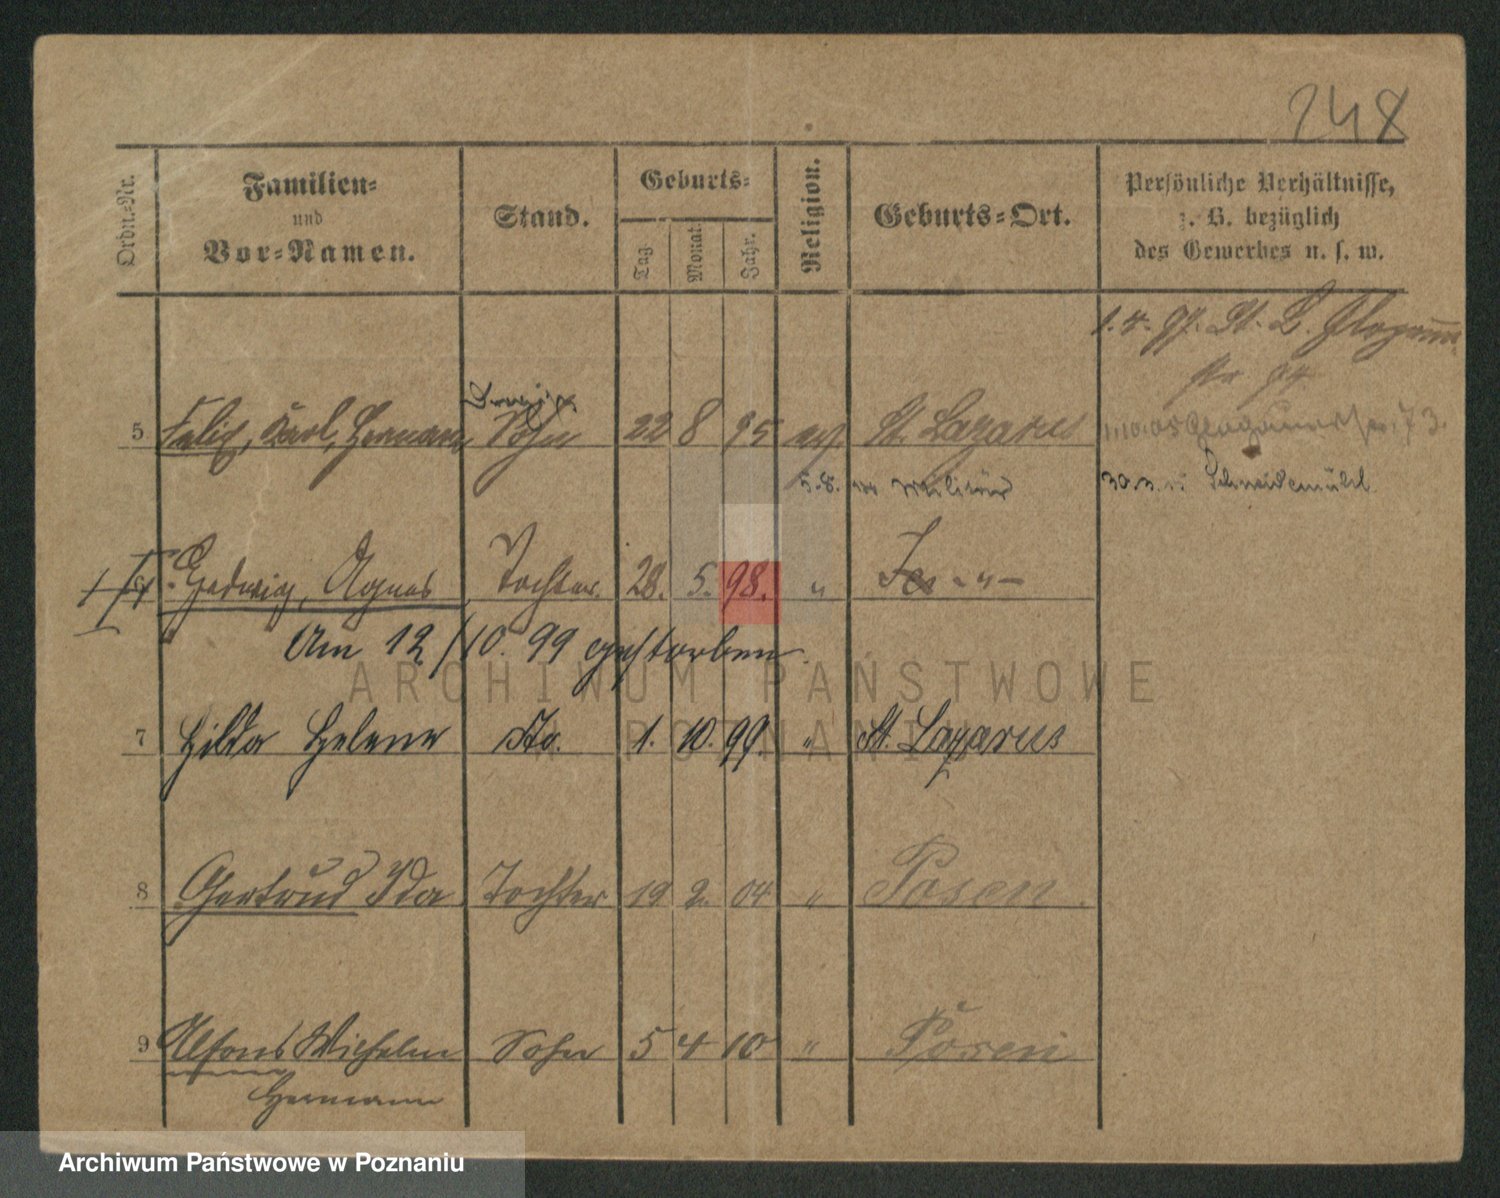 248
Ordn.-Nr.
Familien-
und
Vor-Namen.
Stand.
Geburts-
Tag
Monat.
Jahr.
Religion.
Geburts-Ort.
Persönliche Verhältnisse,
z. B. bezüglich
des Gewerbes u. s. w.
1. 4. St. L. Glogauer
5 Felix, Karl, Hermann Sohn 22 8 95 ev. St. Lazarus
1.10.05 Glogauerstr. 73.
5. 8. Militär 30. 3. Schneidemühl
6 Hedwig, Agnes Tochter. 28. 5. 98. " -"-
Am 12/10. 99 gestorben.
7 Hilda Helene dto. 1. 10. 99. " St. Lazarus
8 Gertrud Ida Tochter 19 2. 04 " Posen.
9 Alfons Wilhelm Sohn 5 4 10 " Posen
Hermann
ARCHIWUM PAŃSTWOWE
W POZNANIU
Archiwum Państwowe w Poznaniu